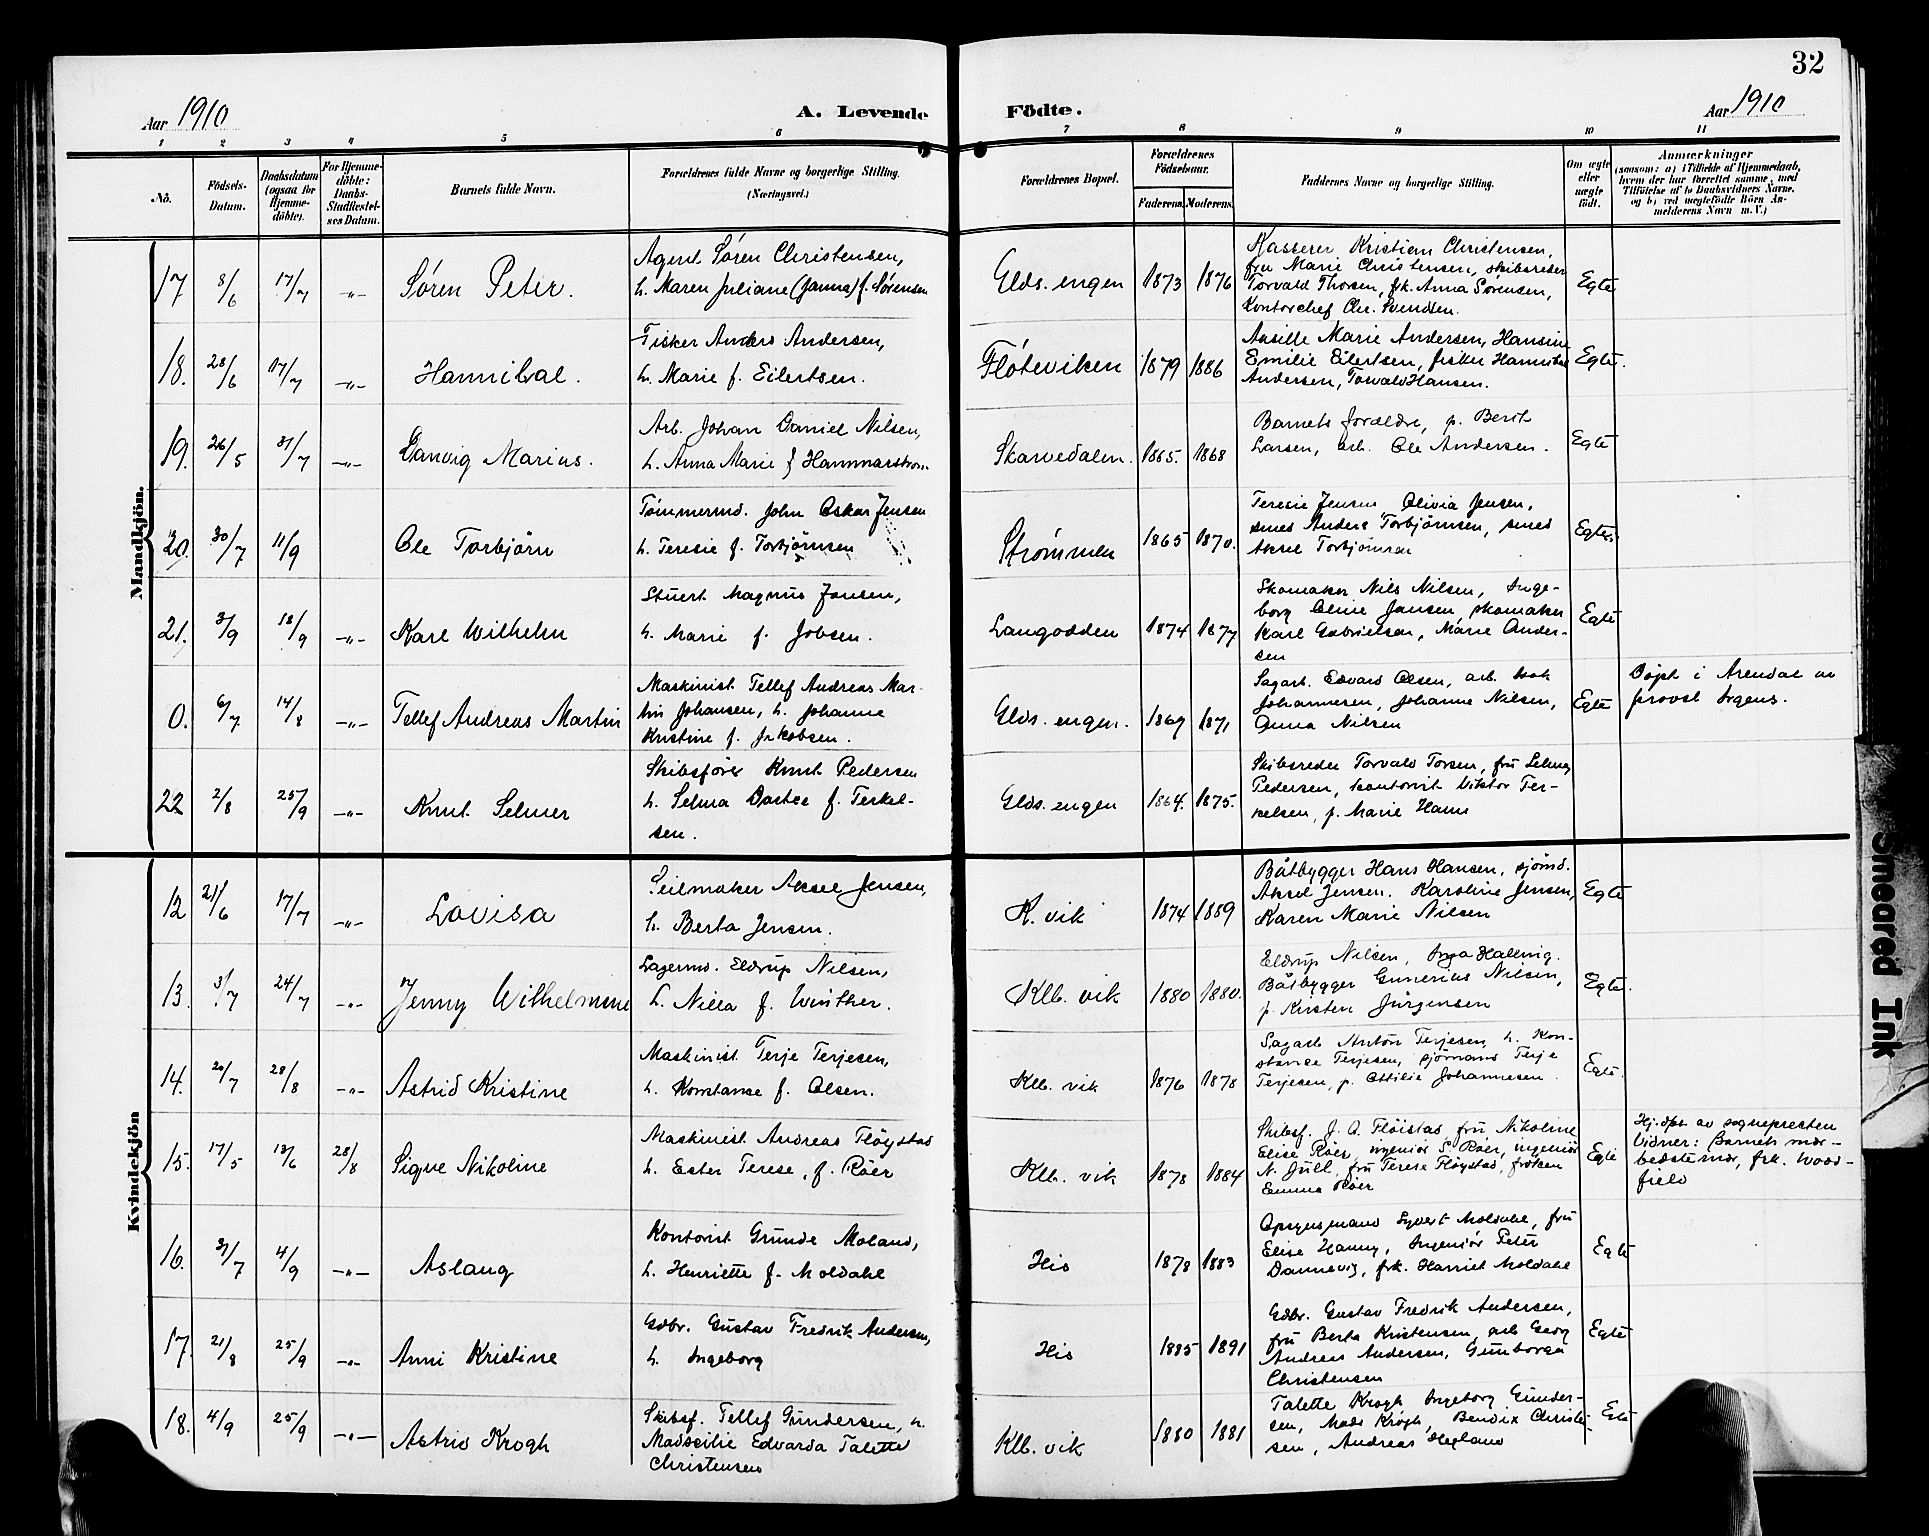 32
Aar 1910
A. Levende
Födte.
Aar 1910
1 2 3 4 5 6 7 8 9 10 11
No.
Födsels-
Datum.
Daabsdatum
(ogsaa for
Hjemme-
döbte).
For Hjemme-
döbte:
Daabs-
Stadfæstel-
ses Datum.
Barnets fulde Navn.
Forældrenes fulde Navne og borgerlige Stilling.
(Næringsvei.)
Forældrenes Bopæl.
Forældrenes
Födselsaar.
Faderens.
Moderens.
Faddernes Navne og borgerlige Stilling.
Om ægte
eller
uægte
födt.
Anmærkninger
(saasom: a) i Tilfælde af Hjemmedaab,
hvem der har forrettet samme, med
Tilföielse af to Daabsvidners Navne,
og b) ved uægtefödte Börn An-
melderens Navn m. V.)
Mandkjön.
17 8/6 17/7 -"- Søren Peter.
Agent Søren Christensen,
h. Maren Juliane (Janna) f. Sørensen
Elds. engen 1873 1876
Kasserer Kristian Christensen,
fru Marie Christensen, skibsreder
Torvald Thorsen, frk. Anna Sørensen,
Kontorchef Chr. Svendsen.
Egte
18. 28/6 17/7 -"- Hannibal.
Fisker Anders Andersen,
h. Marie f. Eilertsen.
Fløteviken 1879 1886
Marie Andersen, Hansine
Emilie Eilertsen, fisker Hannibal
Andersen, Torvald Hansen.
Egte.
19. 26/5 31/7 -"- Danvig Marius.
Arb. Johan Daniel Nilsen,
h. Anna Marie f Hammarstrøm
Skarvedalen. 1865. 1868
Barnets forældre, p. Berit
Larsen, arb. Ole Andersen.
Egte
20. 30/7 11/9 Ole Torbjörn
Tømmermd. John Oskar Jensen
h. Teresie f. Torbjörnsen
Strømmen 1865 1870.
Teresie Jensen, Olivia Jensen,
smed Anders Torbjörnsen, smed
Aksel Torbjörnsen
Egte
21. 3/9 18/9 -"- Karl Wilhelm
Stuert Magnus Jansen,
h. Marie f. Jobsen.
Langodden 1874 1877
Skomaker Nils Nilsen, Inge-
borg Oline Jansen, skomaker
Karl Gabrielsen, Marie Ander-
sen
Egte
0. 6/7 14/8 -"- Tellef Andreas Martin
Maskinist Tellef Andreas Mar-
tin Johansen, h. Johanne
Kristine f. Jakobsen.
Elds. engen. 1869 1871
Sagarb. Edvard Olsen, arb. Isak
Johannesen, Johanne Nilsen,
Anna Nilsen
Egte
Døpt i Arendal av
provst Irgens.
22 2/8 25/9 -"- Knut Selmer
Skibsfører Knut Pedersen
h. Selma Dortea f. Terkel-
sen.
Elds. engen 1864. 1875.
Skibsreder Torvald Torsen, fru Selma
Pedersen, kontorist Viktor Ter-
kelsen, p. Marie Hans
Kvindekjön
12 21/6 17/7 -"- Lovisa
Seilmaker Aksel Jensen,
h. Berta Jensen.
K. vik 1874 1889
Båtbygger Hans Hansen, sjömd.
Aksel Jensen. Karoline Jensen,
Karen Marie Nilsen
Egte
13. 3/7 24/7 -"- Jenny Wilhelmine
Lagermd. Eldrup Nilsen,
h. Nilla f. Winther.
Klb. vik 1880 1880.
Eldrup Nilsen, Inga Halling.
Båtbygger Gunerius Nilsen,
p. Kristen Jürgensen
Egte.
14. 20/7 28/8 -"- Astrid Kristine
Maskinist Terje Terjesen,
h. Konstanse f. Olsen.
Klb. vik 1876 1878
Sagarb Anton Terjesen, h. Kon-
stanse Terjesen, sjömand Terje
Terjesen, p. Ottilie Johannesen.
Egte.
15. 17/5 13/6 28/8 Signe Nikoline
Maskinist Andreas Fløystad
h. Ester Terese, f. Röer
Klb. vik 1878 1884
Skibsf. J. A. Fløistad fru Nikoline
Elise Röer, ingeniör S. Röer, ingeniör
N. Juell, fru Terese Fløystad, frøken
Emma Röer
Egte
Hj. døpt av sognepresten
Vidner: Barnets mor-
bedstemor, frk. Wood-
field
16. 31/7 4/9 -"- Aslaug
Kontorist Gunde Moland,
h. Henriette f. Moldahl
His 1878 1883
Opsynsmand Syvert Moldahl, fru
Elise Hanny, Ingeniör Peter
Dannevig, frk. Harriet Moldahl
Egte
17. 21/8 25/9 -"- Anni Kristine
Gdbr. Gustav Fredrik Andersen,
h. Ingeborg
His 1885 1891
Gdbr. Gustav Fredrik Andersen,
fru Berta Kristensen, arb Georg
Andreas Andersen, Gunborga
Christensen
Egte
18. 4/9 25/9 -"- Astrid Krogh
Skibsf. Tellef Gundersen, h.
Madseilie Edvarda Talette
Christensen
Klb. vik 1880 1881
Talette Krogh Ingeborg Gunder-
sen, Mads Krogh, Bendix Christen-
sen, Andreas Høgland
Egte
Smeared Ink